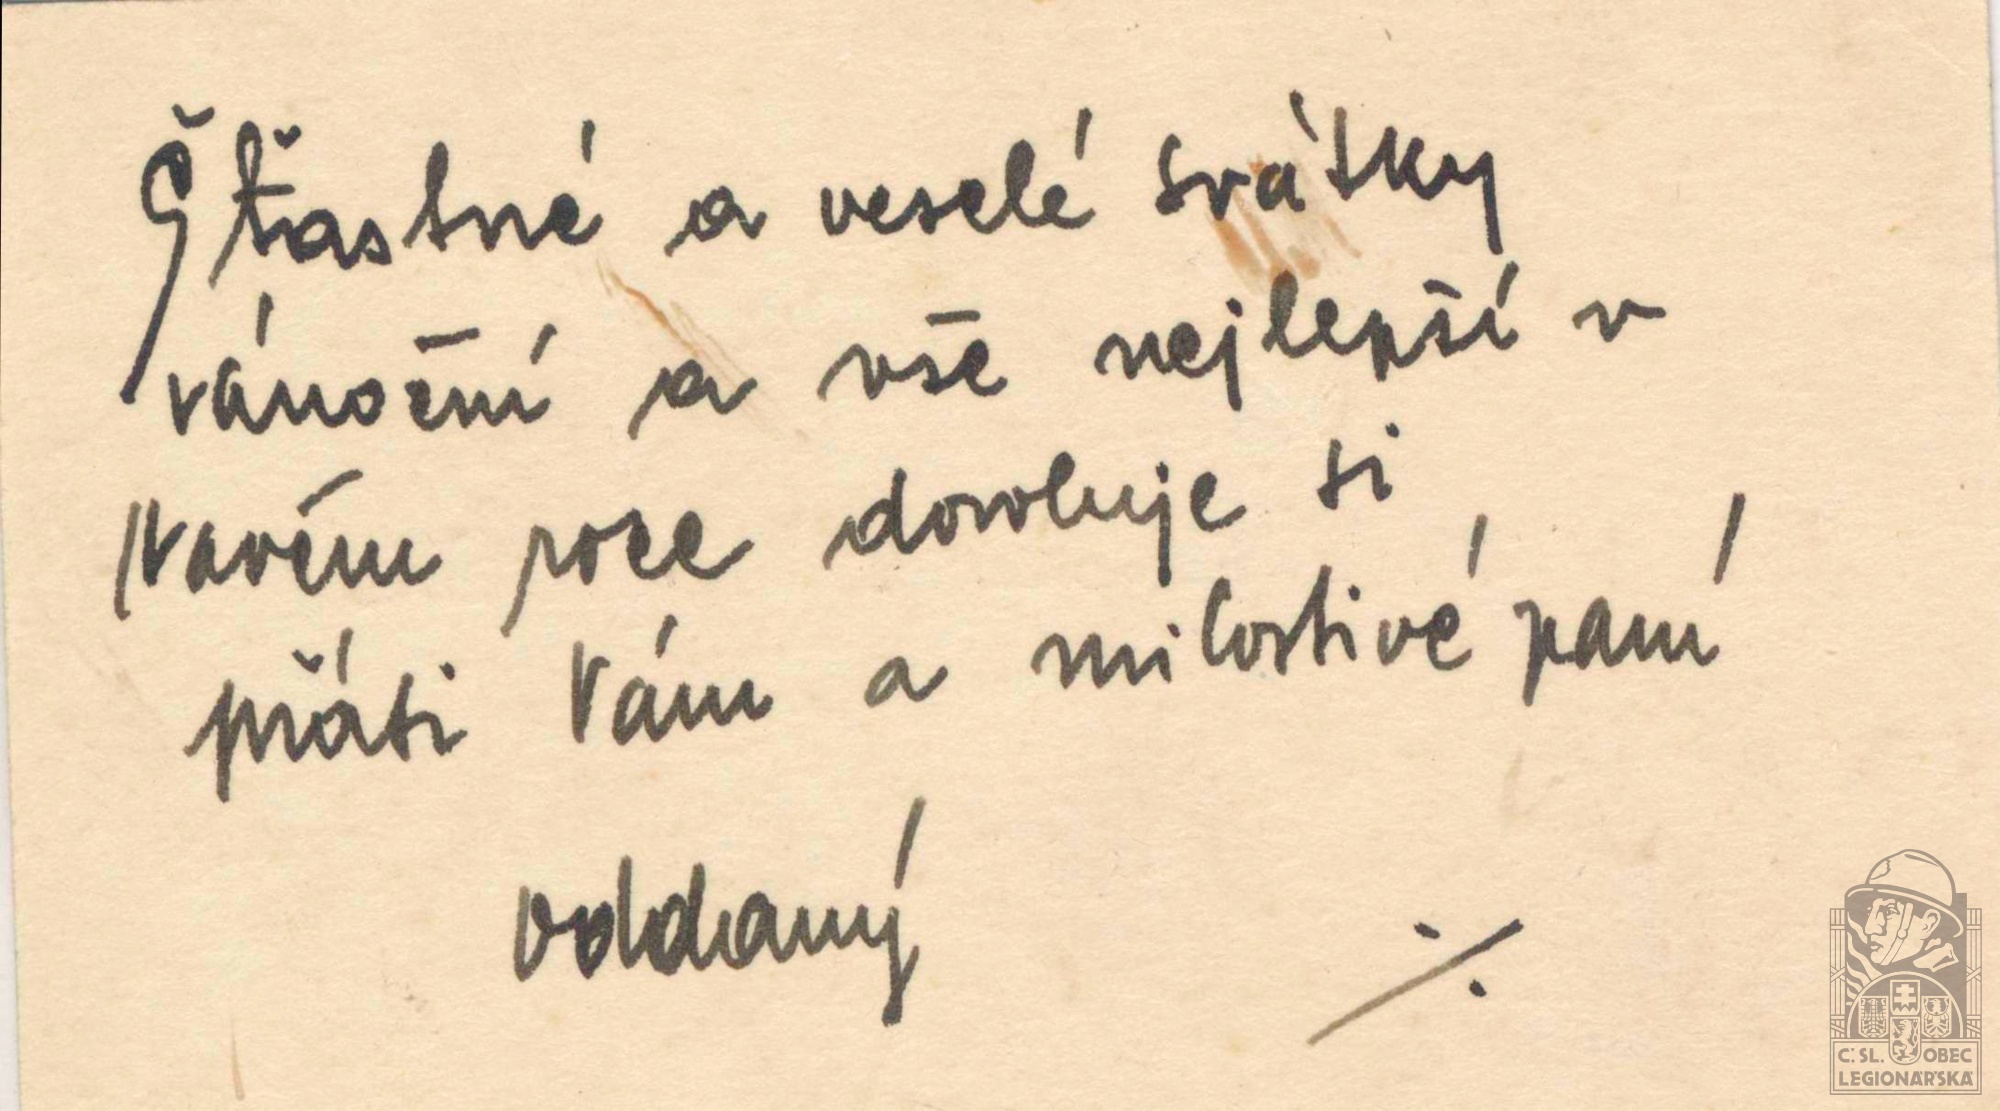 Šťastné a veselé svátky
vánoční a vše nejlepší v
Novém roce dovoluje si
přáti Vám a milostivé paní
oddaný
./.
Č.SL. OBEC
LEGIONÁŘSKÁ